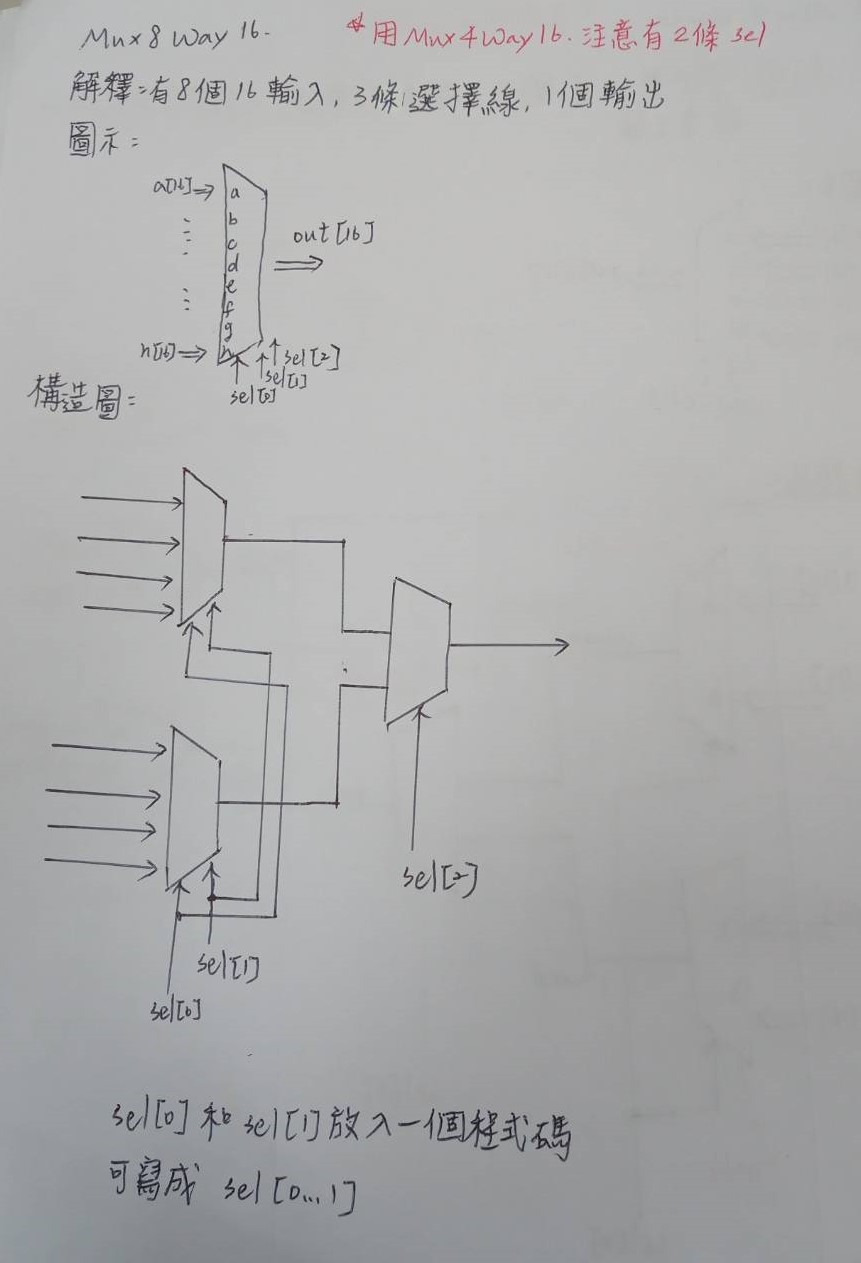 Mux 8 Way 16.
*用 Mux4Way16. 注意有2條 sel
解釋:有8個16輸入, 3條選擇線, 1個輸出
圖示:
a[16]⇒
a
b
c
d
e
f
g
h
out [16]
h[16]⇒
sel[2]
sel[1]
sel[0]
構造圖:
sel[2]
sel[1]
sel[0]
sel[0] 和 sel[1] 放入一個程式碼
可寫成 sel [0...1]